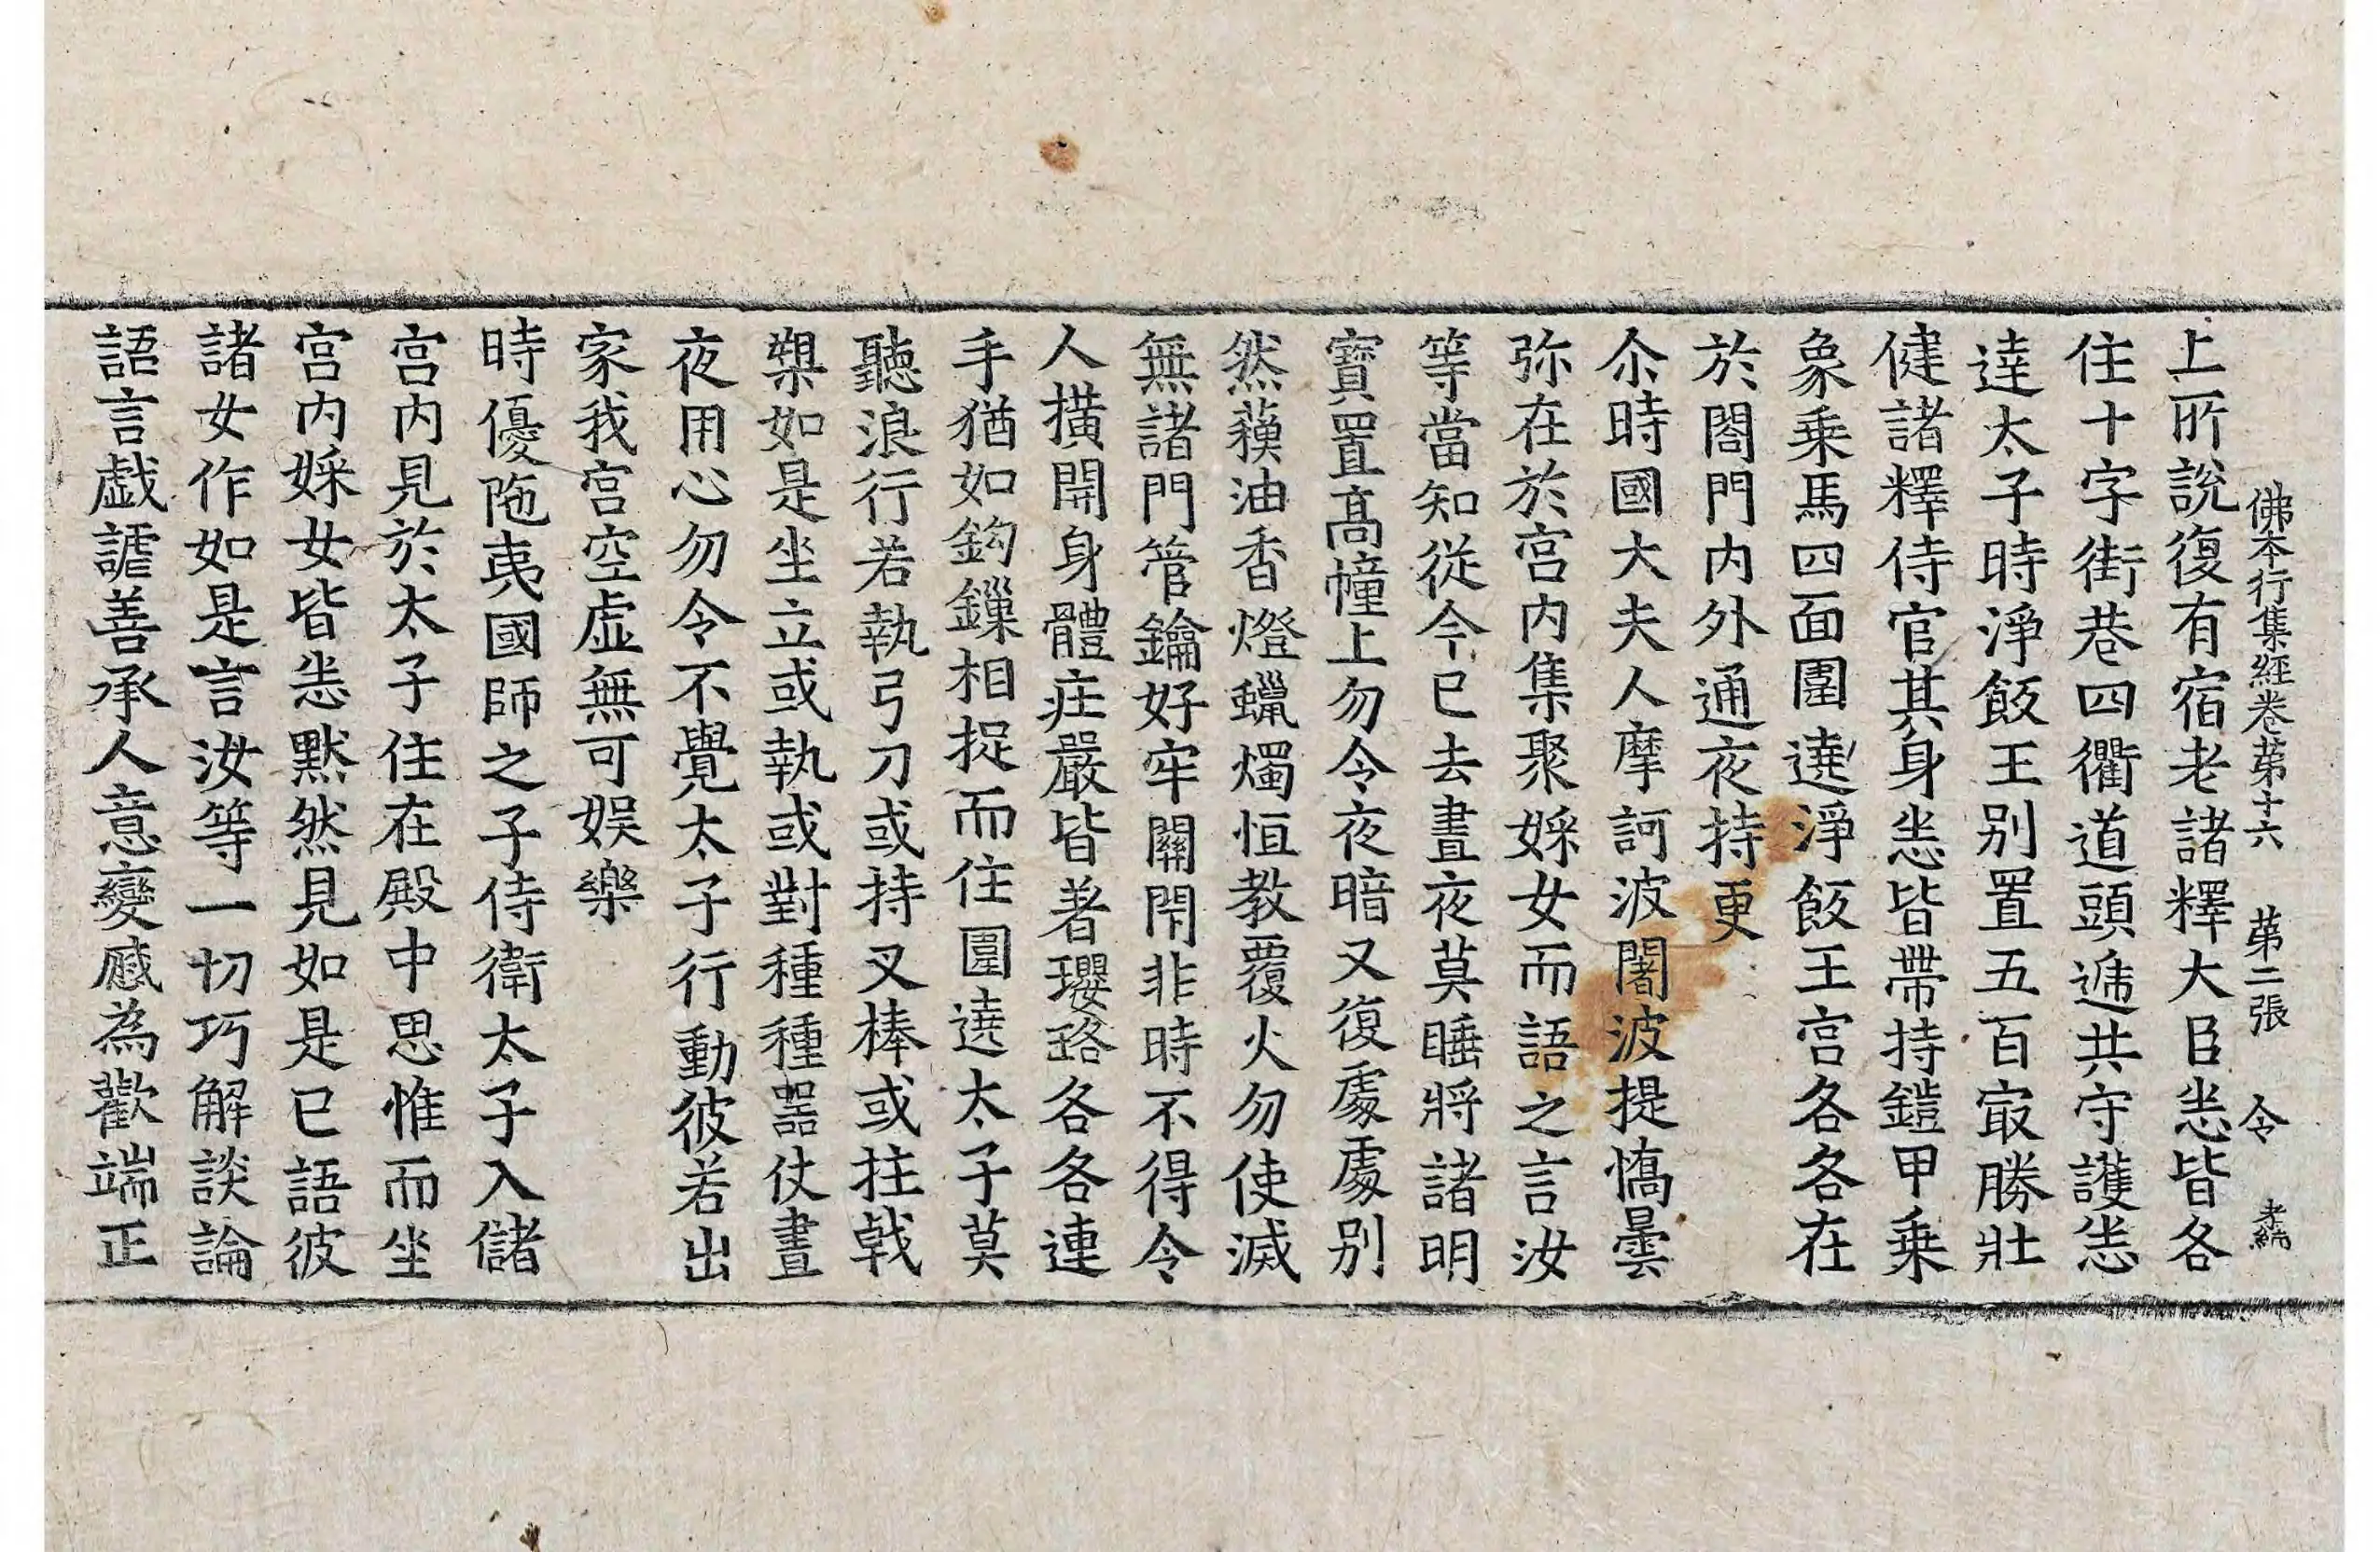 佛本行集經卷苐十六 苐二張 令 孝綸
上所說復有宿老諸釋大臣㤪皆各
住十字街巷四衢道頭遞共守護㤪
達太子時淨飯王别置五百㝡勝壯
健諸釋侍官其身㤪皆帶持鎧甲乗
象乗馬四面圍遶淨飯王宫各各在
於閤門内外通夜持更
尒時國大夫人摩訶波闍波提憍曇
弥在於宫内集聚婇女而語之言汝
等當知從今已去晝夜莫睡將諸明
寶置髙幢上勿令夜暗又復處處别
然蘓油香燈蠟燭恒教覆火勿使滅
無諸門管鑰好牢關閇非時不得令
人撗開身體庄嚴皆著瓔珞各各連
手猶如鈎鏁相捉而住圍遶太子莫
聽浪行若執弓刀或持叉棒或拄戟
槊如是坐立或執或對種種噐仗晝
夜用心勿令不覺太子行動彼若出
家我宫空虚無可娱樂
時優陁夷國師之子侍衛太子入儲
宫内見於太子住在殿中思惟而坐
宫内婇女皆㤪黙然見如是已語彼
諸女作如是言汝等一切巧解談論
語言戯謔善承人意變慼為歡端正